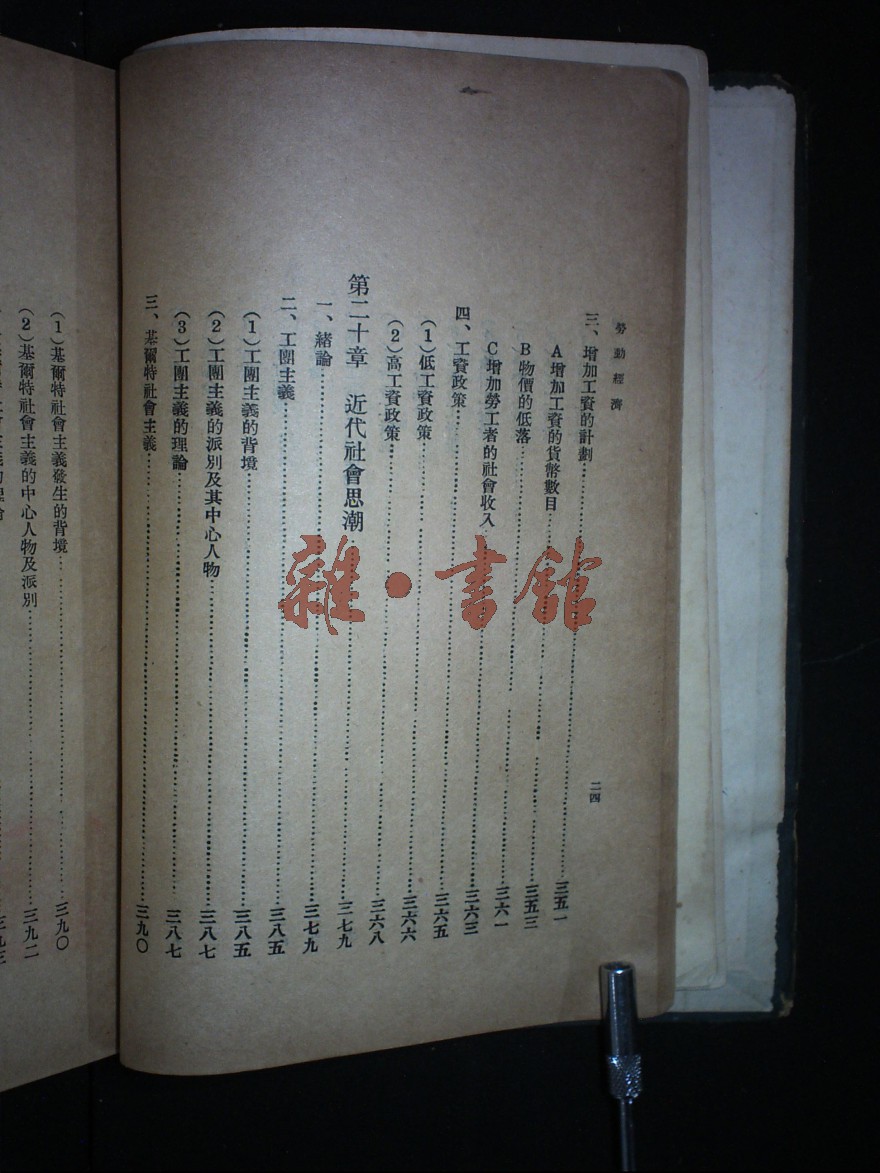 勞動經濟
二四
三、增加工資的計劃……三五一
A增加工資的貨幣數目……三五三
B物價的低落……三六一
C增加勞工者的社會收入……三六三
四、工資政策……三六五
(1)低工資政策……三六六
(2)高工資政策……三六八
第二十章 近代社會思潮……三七九
一、緒論……三七九
二、工團主義……三八五
(1)工團主義的背境……三八五
(2)工團主義的派別及其中心人物……三八七
(3)工團主義的理論……三八七
三、基爾特社會主義……三九〇
(1)基爾特社會主義發生的背境……三九〇
(2)基爾特社會主義的中心人物及派別……三九二
雜·書館